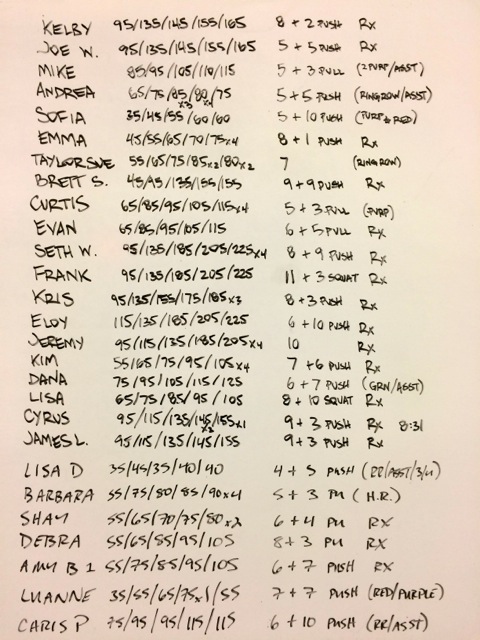 KELBY 95/135/145/155/165 8 + 2 PUSH Rx
JOE W. 95/135/145/155/165 5 + 5 PUSH Rx
MIKE 85/95/105/110/115 5 + 3 PULL (2PURP/ASST)
ANDREA 65/75/85x3/80x4/75 5 + 5 PUSH (RINGROW/ASST)
SOFIA 35/45/55/60/60 5 + 10 PUSH (PURP & RED)
EMMA 45/55/65/70/75x4 8 + 1 PUSH Rx
TAYLORSUE 55/65/75/85x2/80x2 7 (RINGROW)
BRETT S. 45/95/135/155/155 9 + 9 PUSH Rx
CURTIS 65/85/95/105/115x4 5 + 3 PULL (PURP)
EVAN 65/85/95/105/115 6 + 5 PULL Rx
SETH W. 95/135/185/205/225x4 8 + 9 PUSH Rx
FRANK 95/135/185/205/225 11 + 3 SQUAT Rx
KRIS 95/135/155/175/185x3 8 + 3 PUSH Rx
ELOY 115/135/185/205/225 6 + 10 PUSH Rx
JEREMY 95/115/135/185/205x4 10 Rx
KIM 55/65/75/95/105x4 7 + 6 PUSH Rx
DANA 75/95/105/115/125 6 + 7 PUSH (GRN/ASST)
LISA 65/75/85/95/105 8 + 10 SQUAT Rx
CYRUS 95/115/135/145x2/155x1 9 + 3 PUSH Rx 8:31
JAMES L. 95/115/135/145/155 9 + 3 PUSH Rx
LISA D 35/45/35/40/40 4 + 5 PUSH (RR/ASST/3/4)
BARBARA 55/75/80/85/90x4 5 + 3 PU (H.R.)
SHAY 55/65/70/75/80x2 6 + 4 PU RX
DEBRA 55/65/85/95/105 8 + 3 PU RX
AMY B 1 55/75/85/95/105 6 + 7 PUSH RX
LUANNE 35/55/65/75x1/55 7 + 7 PUSH (RED/PURPLE)
CARIS P 75/95/95/115/115 6 + 10 PUSH (RR/ASST)